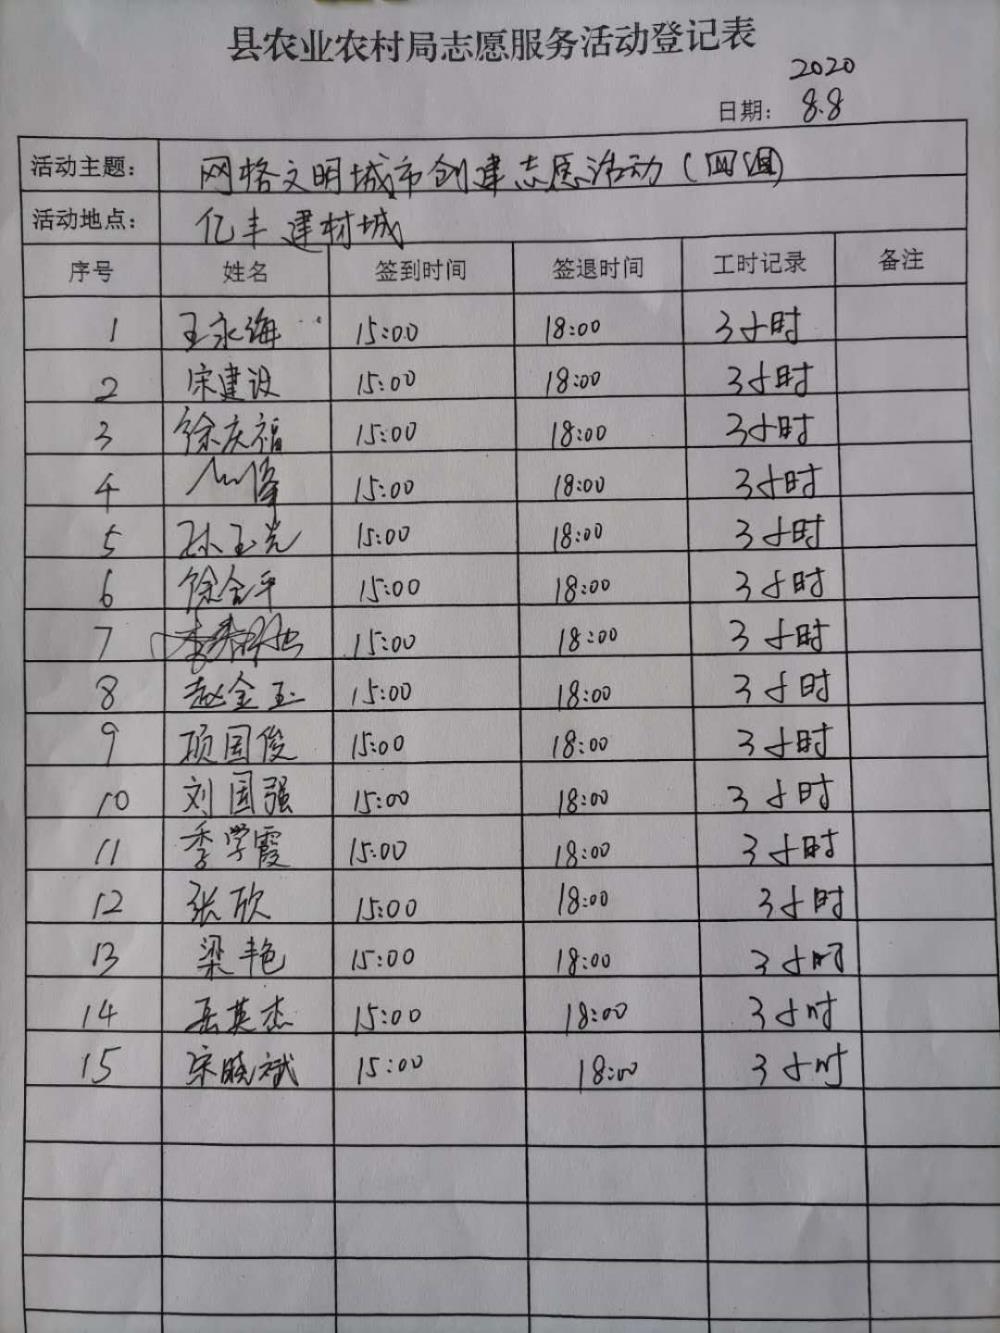 县农业农村局志愿服务活动登记表
2020
日期： 8.8
活动主题： 网格文明城市创建志愿活动（四通）
活动地点： 亿丰建材城
序号 姓名 签到时间 签退时间 工时记录 备注
1 王永海 15:00 18:00 3小时
2 宋建设 15:00 18:00 3小时
3 徐庆福 15:00 18:00 3小时
4 15:00 18:00 3小时
5 孙玉光 15:00 18:00 3小时
6 徐合平 15:00 18:00 3小时
7 15:00 18:00 3小时
8 赵金玉 15:00 18:00 3小时
9 项国俊 15:00 18:00 3小时
10 刘国强 15:00 18:00 3小时
11 季学霞 15:00 18:00 3小时
12 张欣 15:00 18:00 3小时
13 梁艳 15:00 18:00 3小时
14 岳英杰 15:00 18:00 3小时
15 宋晓斌 15:00 18:00 3小时